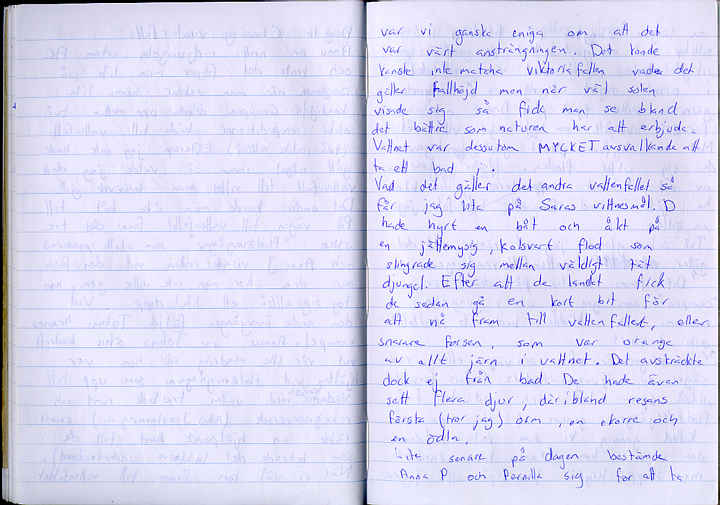 var vi ganska eniga om att det
var värt ansträngningen. Det kunde
kanske inte matcha Viktoriafallen vad det
gäller fallhöjd men när väl solen
visade sig så fick man se bland
det bättre som naturen har att erbjuda.
Vattnet var dessutom MYCKET avsvalkande att
ta ett bad i.
Vad det gäller det andra vattenfallet så
får jag lita på Saras vittnesmål. D
hade hyrt en båt och åkt på
en jättemysig, kolsvart flod som
slingrade sig mellan väldigt tät
djungel. Efter att de landat fick
de sedan gå en kort bit för
att nå fram till vattenfallet, eller
snarare forsen, som var orange
av allt järn i vattnet. Det avskräckte
dock ej från bad. De hade även
sett flera djur, däribland resans
första (tror jag) orm, en ekorre och
en ödla.
Lite senare på dagen bestämde
Anna P och Pernilla sig för att ta